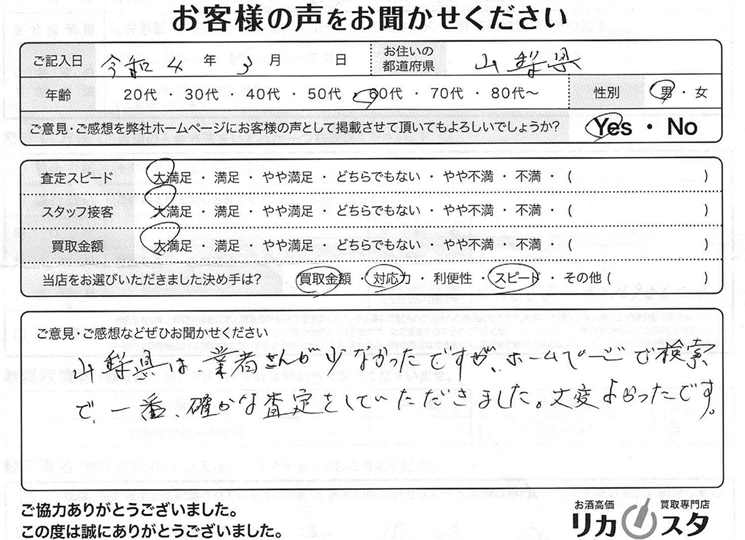 お客様の声をお聞かせください
ご記入日 令和4年3月 日 お住いの都道府県 山梨県
年齢 20代 ・ 30代 ・ 40代 ・ 50代 ・ 60代 ・ 70代 ・ 80代～ 性別 男 ・ 女
ご意見・ご感想を弊社ホームページにお客様の声として掲載させて頂いてもよろしいでしょうか? Yes ・ No
査定スピード 大満足 ・ 満足 ・ やや満足 ・ どちらでもない ・ やや不満 ・ 不満 ・ ( )
スタッフ接客 大満足 ・ 満足 ・ やや満足 ・ どちらでもない ・ やや不満 ・ 不満 ・ ( )
買取金額 大満足 ・ 満足 ・ やや満足 ・ どちらでもない ・ やや不満 ・ 不満 ・ ( )
当店をお選びいただきました決め手は? 買取金額 ・ 対応力 ・ 利便性 ・ スピード ・ その他 ( )
ご意見・ご感想などぜひお聞かせください
山梨県は、業者さんが少なかったですが、ホームページで検索
で、一番、確かな査定をしていただきました。大変よかったです。
ご協力ありがとうございました。
この度は誠にありがとうございました。
お酒高価 買取専門店
リカスタ